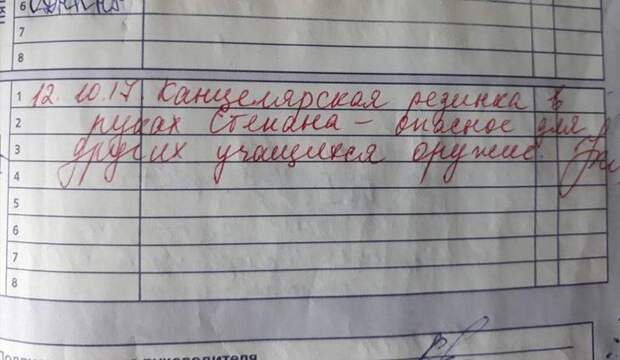 6
7
8
1 12.10.17. Канцелярская резинка в
2 руках Степана – опасное для
3 других учащихся оружие.
4
5
6
7
8
руководителя